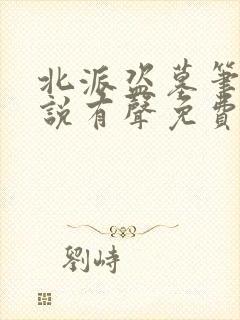 北派盜墓筆
說有聲免費
劉峙